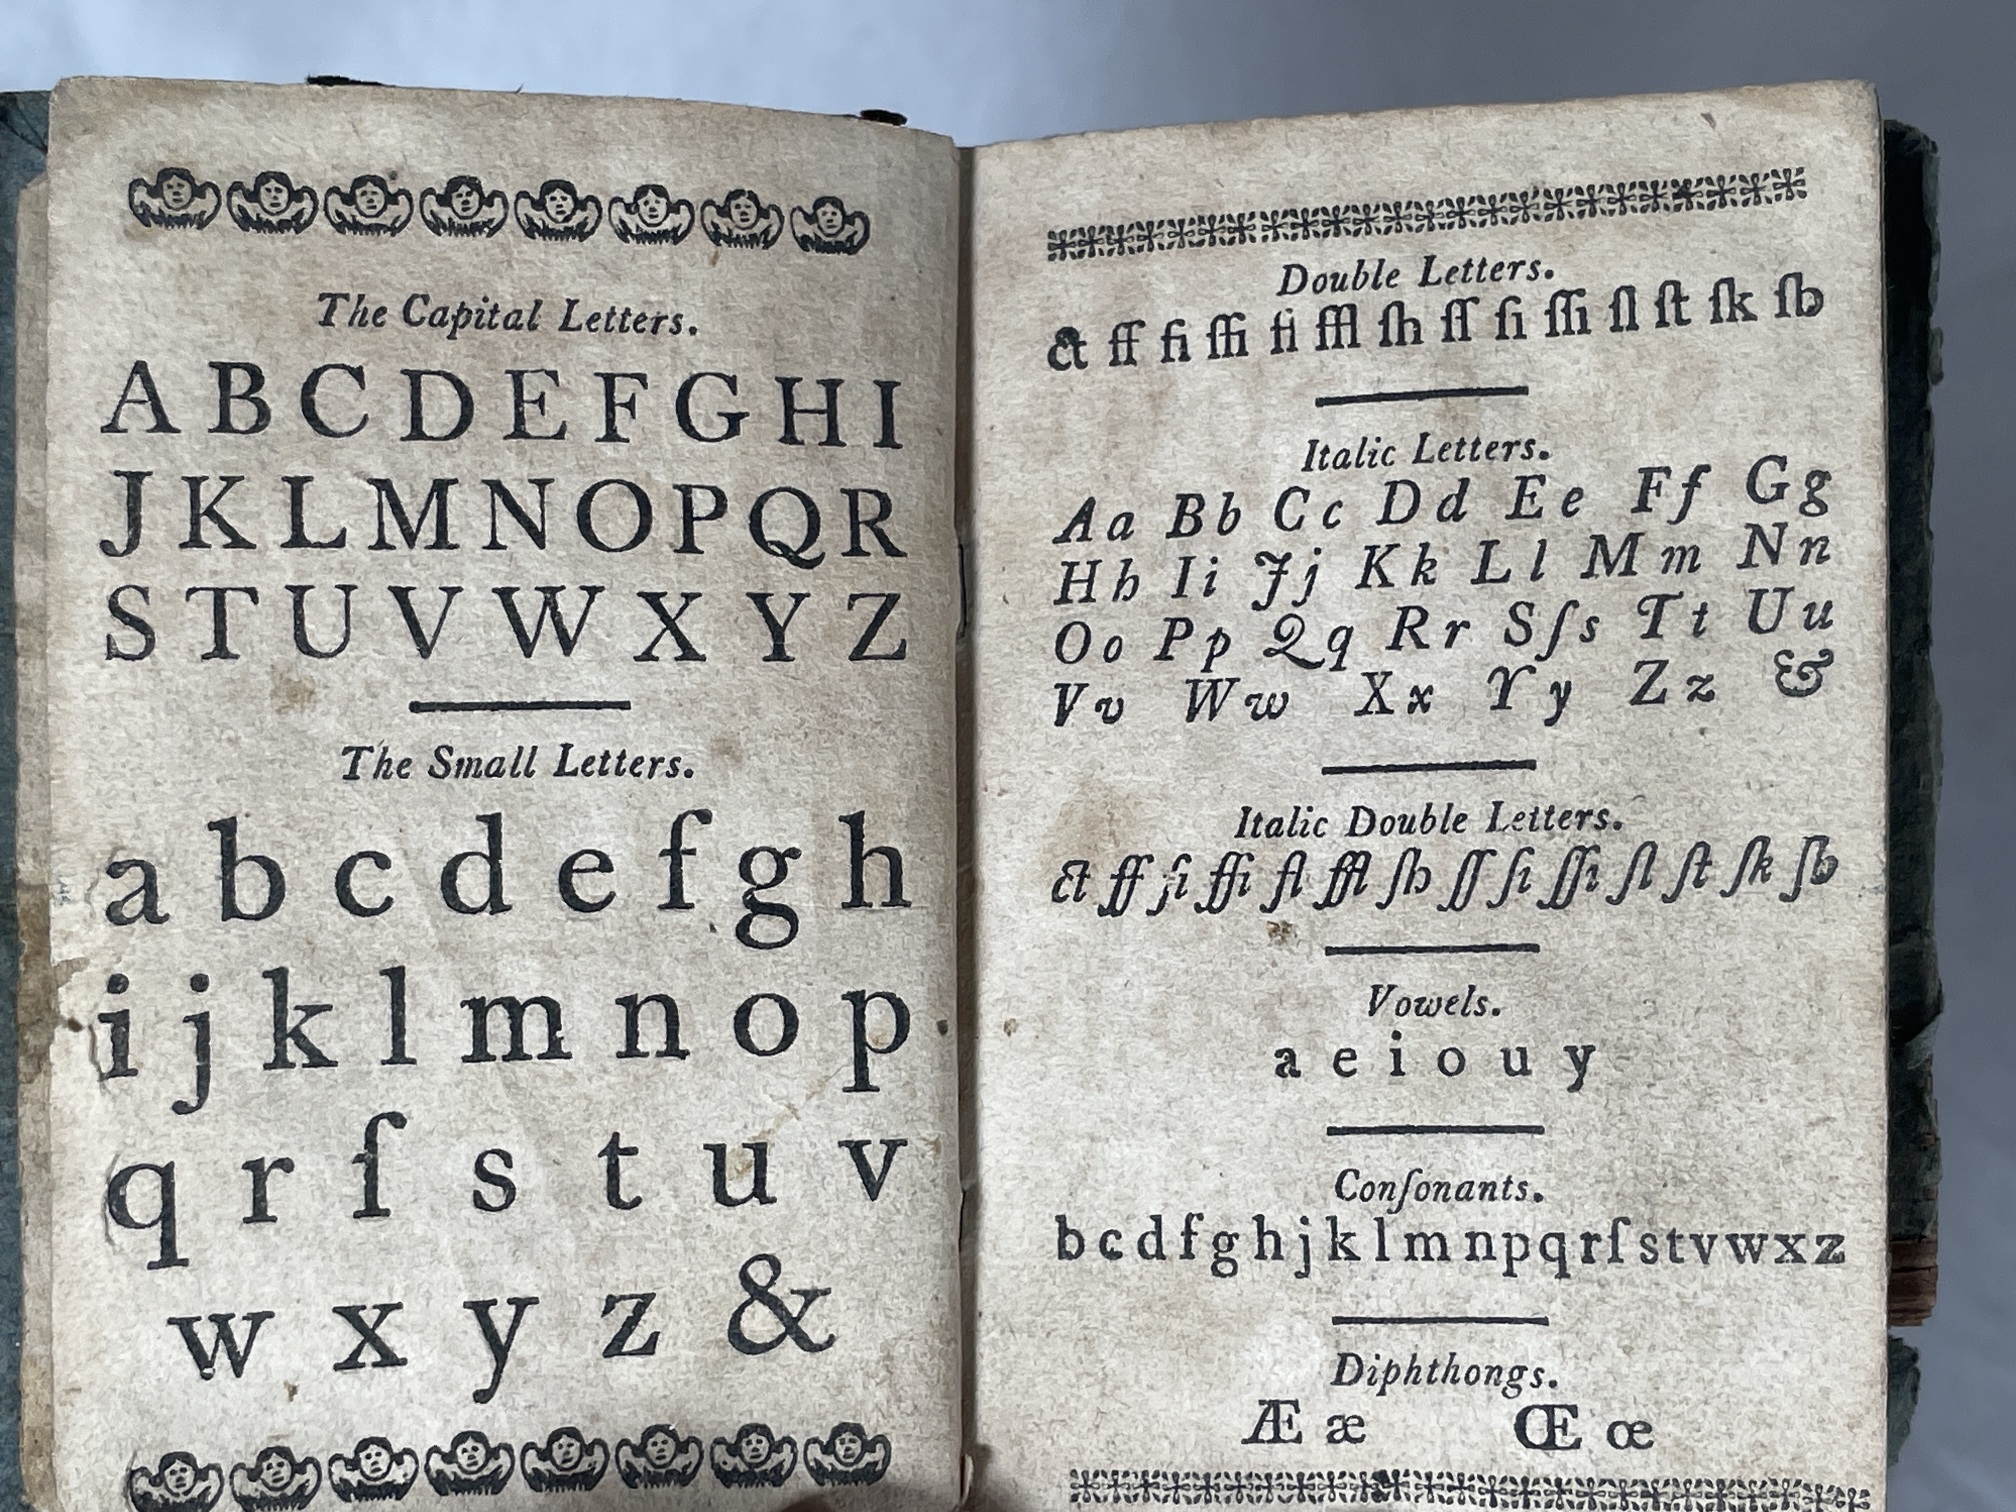 The Capital Letters.
A B C D E F G H I
J K L M N O P Q R
S T U V W X Y Z
The Small Letters.
a b c d e f g h
i j k l m n o p
q r ſ s t u v
w x y z &
Double Letters.
ct ff fi ffi fl ffl ſh ſſ ſi ſſi ſl ſt ſk ſb
Italic Letters.
Aa Bb Cc Dd Ee Ff Gg
Hh Ii Jj Kk Ll Mm Nn
Oo Pp Qq Rr Sſs Tt Uu
Vv Ww Xx Yy Zz &
Italic Double Letters.
ct ff fi ffi fl ffl ſh ſſ ſi ſſi ſl ſt ſk ſb
Vowels.
a e i o u y
Conſonants.
b c d f g h j k l m n p q r ſ s t v w x z
Diphthongs.
Æ æ Œ œ